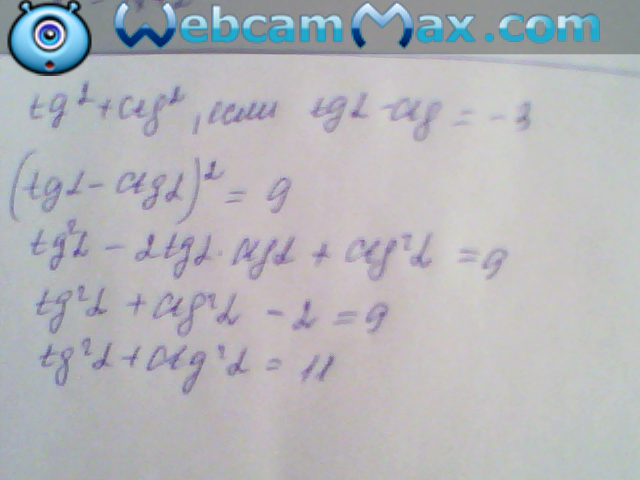 WebcamMax.com
tg² + ctg², если tgα - ctg = -3
(tgα - ctgα)² = 9
tg²α - 2tgα · ctgα + ctg²α = 9
tg²α + ctg²α - 2 = 9
tg²α + ctg²α = 11